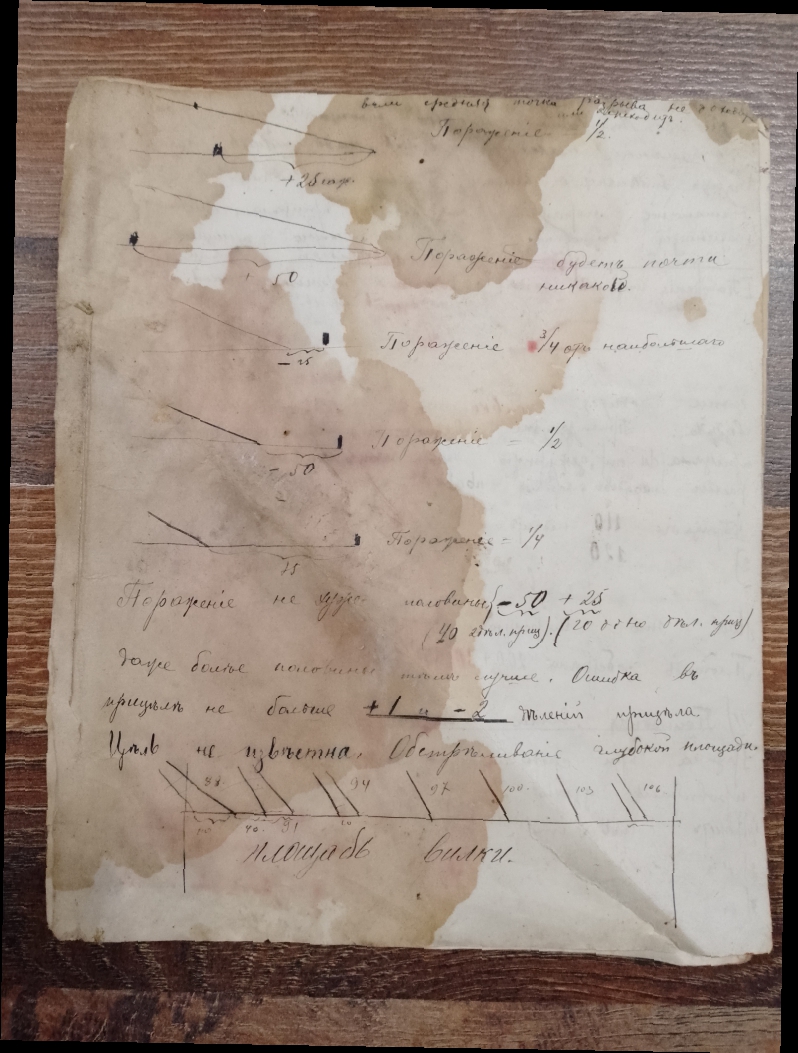 вали средняя точка разрыва не
Пораженiе 1/2.
+ 25 саж.
Пораженiе будетъ почти
никакое.
+ 50
Пораженiе 3/4 отъ наибольшаго
- 25
Пораженiе = 1/2
- 50
Пораженiе = 1/4
75
Пораженiе не хуже половины - 50 + 25
(40 дѣл. приц). (20 дѣл. приц)
даже болѣе половины лучше. Ошибка въ
прицѣлѣ не больше +1 и -2 дѣленiй прицѣла
Цѣль не извѣстна. Обстрѣливанiе глубокой площади.
88. 94 97 100. 103 106
40. 91
площадь вилки.